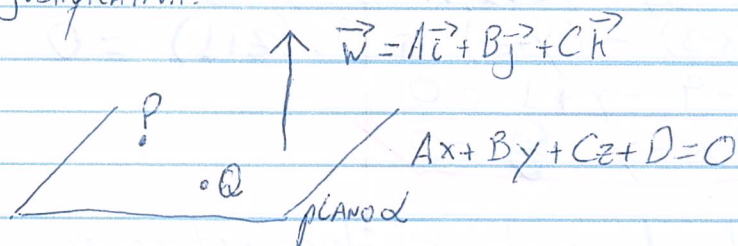 w⃗ = Ai⃗ + Bj⃗ + Ck⃗
P
Ax + By + Cz + D = 0
Q
PLANO α